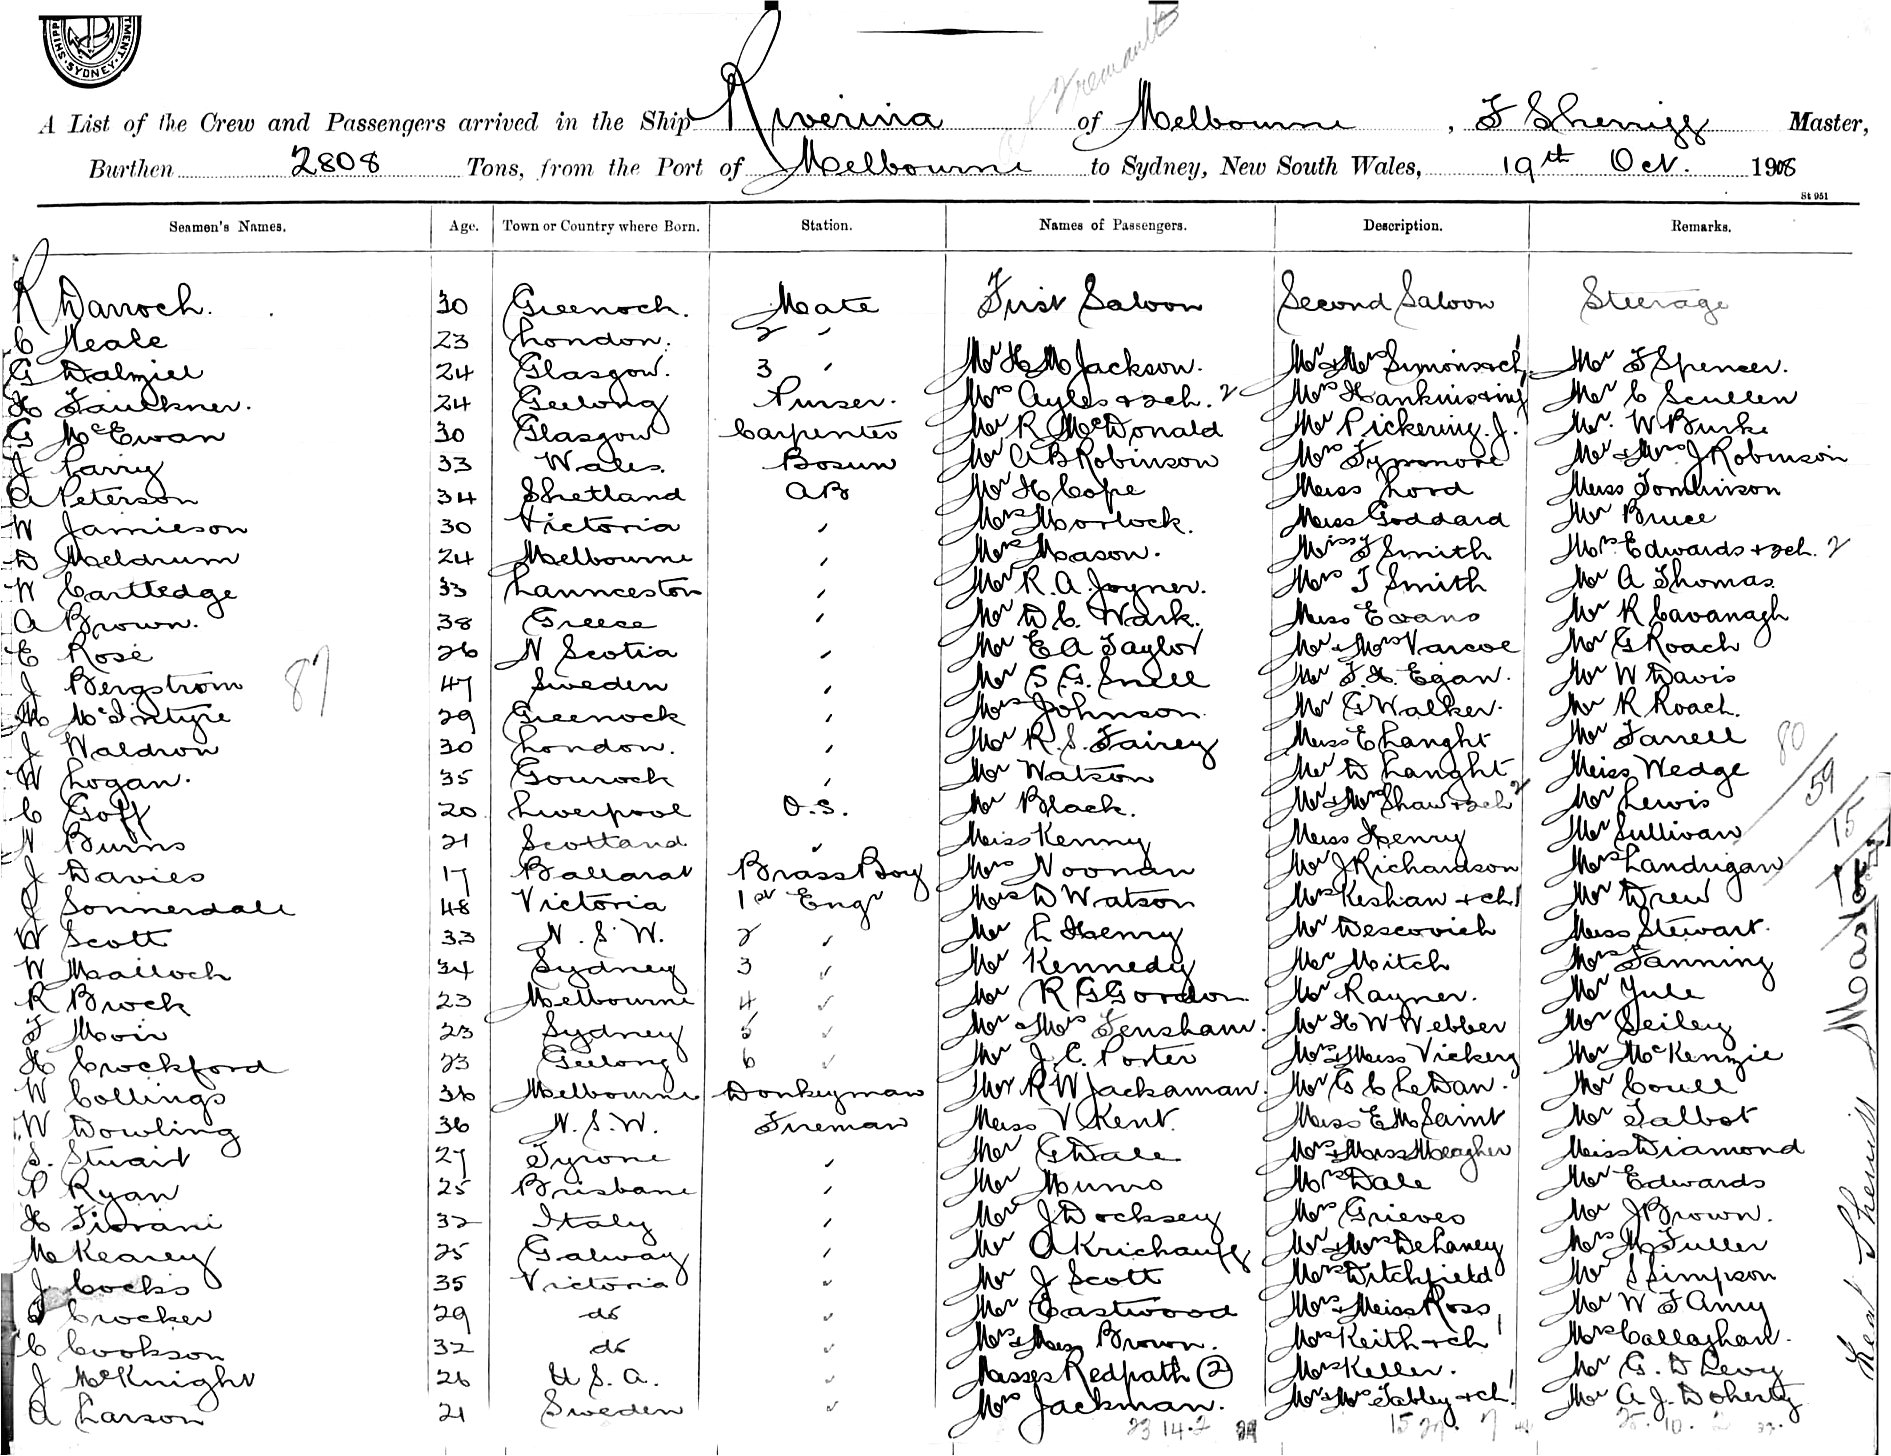 SHIPPI MENT. SYDNEY
at Fremantle
A List of the Crew and Passengers arrived in the Ship Riverina of Melbourne, F Sherrigg Master,
Burthen 2808 Tons, from the Port of Melbourne to Sydney, New South Wales, 19th Oct. 1908
St 951
Seamen's Names. Age. Town or Country where Born. Station. Names of Passengers. Description. Remarks.
R Darroch. 30 Greenoch. Mate First Saloon Second Saloon Steerage
C Neale 23 London. 2 "
G Dalziell 24 Glasgow. 3 " Mr H M Jackson. Mr & Mrs Simons & ch 1 Mr F Spencer.
H Faulkner. 24 Geelong Purser. Mrs Ayles & 2 ch. 2 Mrs Hankins & inf Mr C Scullen
G McEwan 30 Glasgow Carpenter Mr R McDonald Mr Pickering. J. Mr. W Burke
J Parry 33 Wales. Bosun Mr A B Robinson Mrs Fyssmore Mr & Mrs J Robinson
A Peterson 34 Shetland AB Mr H Cope Miss Lord Miss Tomlinson
W Jamieson 30 Victoria " Mrs Morlock. Miss Goddard Mr Bruce
D Meldrum 24 Melbourne " Mrs Mason. Miss F Smith Mrs Edwards & 2 ch. 2
W Cartledge 33 Launceston " Mr R. A. Joyner. Mrs J Smith Mr A Thomas.
A Brown. 38 Greese " Mr D C. Wark. Miss Evans Mr R Cavanagh
E Rose 26 N Scotia " Mr E A Taylor Mr & Mrs Varcoe Mr G Roach
J Bergstrom 47 Sweden " Mr S. G. Snell Mr F. H. Egan. Mr W Davis
87
M McIntyre 29 Greenock " Mrs Johnson. Mr G Walker. Mr R Roach.
J Waldron 30 London. " Mr R. S. Fairey Miss E Langht Mr Farrell 80
W Logan. 35 Gourock " Mr Watson Mr D Langht Miss Wedge 59
C Goff 20 Liverpool O.S. Mr Black. Mr & Mrs Shaw & 2 ch 2 Mr Lewis 15
N Burns 21 Scotland " Miss Kenny Miss Henry Mr Sullivan
J Davies 17 Ballarat Brass Boy Mrs Noonan Mr J Richardson Mrs Landrigan
J Sonnerdale 48 Victoria 1st Engr Mrs D Watson Mrs Keshan & ch 1 Mr Drew
W Scott 33 N. S. W. 2 " Mr L Henry Mr Descovich Miss Stewart.
W Mailoch 34 Sydney 3 " Mr Kennedy Mr Mitch Mrs Fanning
R Brock 23 Melbourne 4 " Mr R G Gordon Mr Rayner. Mr Yule
F Moir 23 Sydney 5 " Mr & Mrs Fensham. Mr H W Webber Mr Seiley
H Crockford 23 Geelong 6 " Mr J. C. Porter Mrs & Miss Vickery Mr McKenzie
W Collings 36 Melbourne Donkeyman Mr R W Jackaman. Mr G C LeDan. Mr Coull
W Dowling 36 N. S. W. Fireman Miss V Kent. Miss E M Saint Mr Talbot
S. Stuart 27 Tyrone " Mr G Dale Mrs & Miss Meagher Miss Diamond
P Ryan 25 Brisbane " Mr Munro Mrs Dale Mr Edwards
H Fiorani 32 Italy " Mr J Docksey Mrs Grieves Mr J Brown.
M Kearey 25 Galway " Mr A Krichauff Mr & Mrs DeLaney Mrs M Fuller
J Cocks 35 Victoria " Mr J Scott Mrs Ditchfield Mr S Simpson
J Crocker 29 do " Mr Eastwood Mrs & Miss Ross Mr W F Amy
C Cookson 32 do " Mrs & Miss Brown. Mrs Keith & ch 1 Mrs Callaghan.
J McKnight 26 U. S. A. " Masses Redpath (2) Mrs Keller. Mr G. D Levy
A Larson 21 Sweden " Mrs Jackman. Mr & Mrs Tabley & ch 1 Mr A. J. Doherty
23 14.2 15 7 25. 10. 2
Master